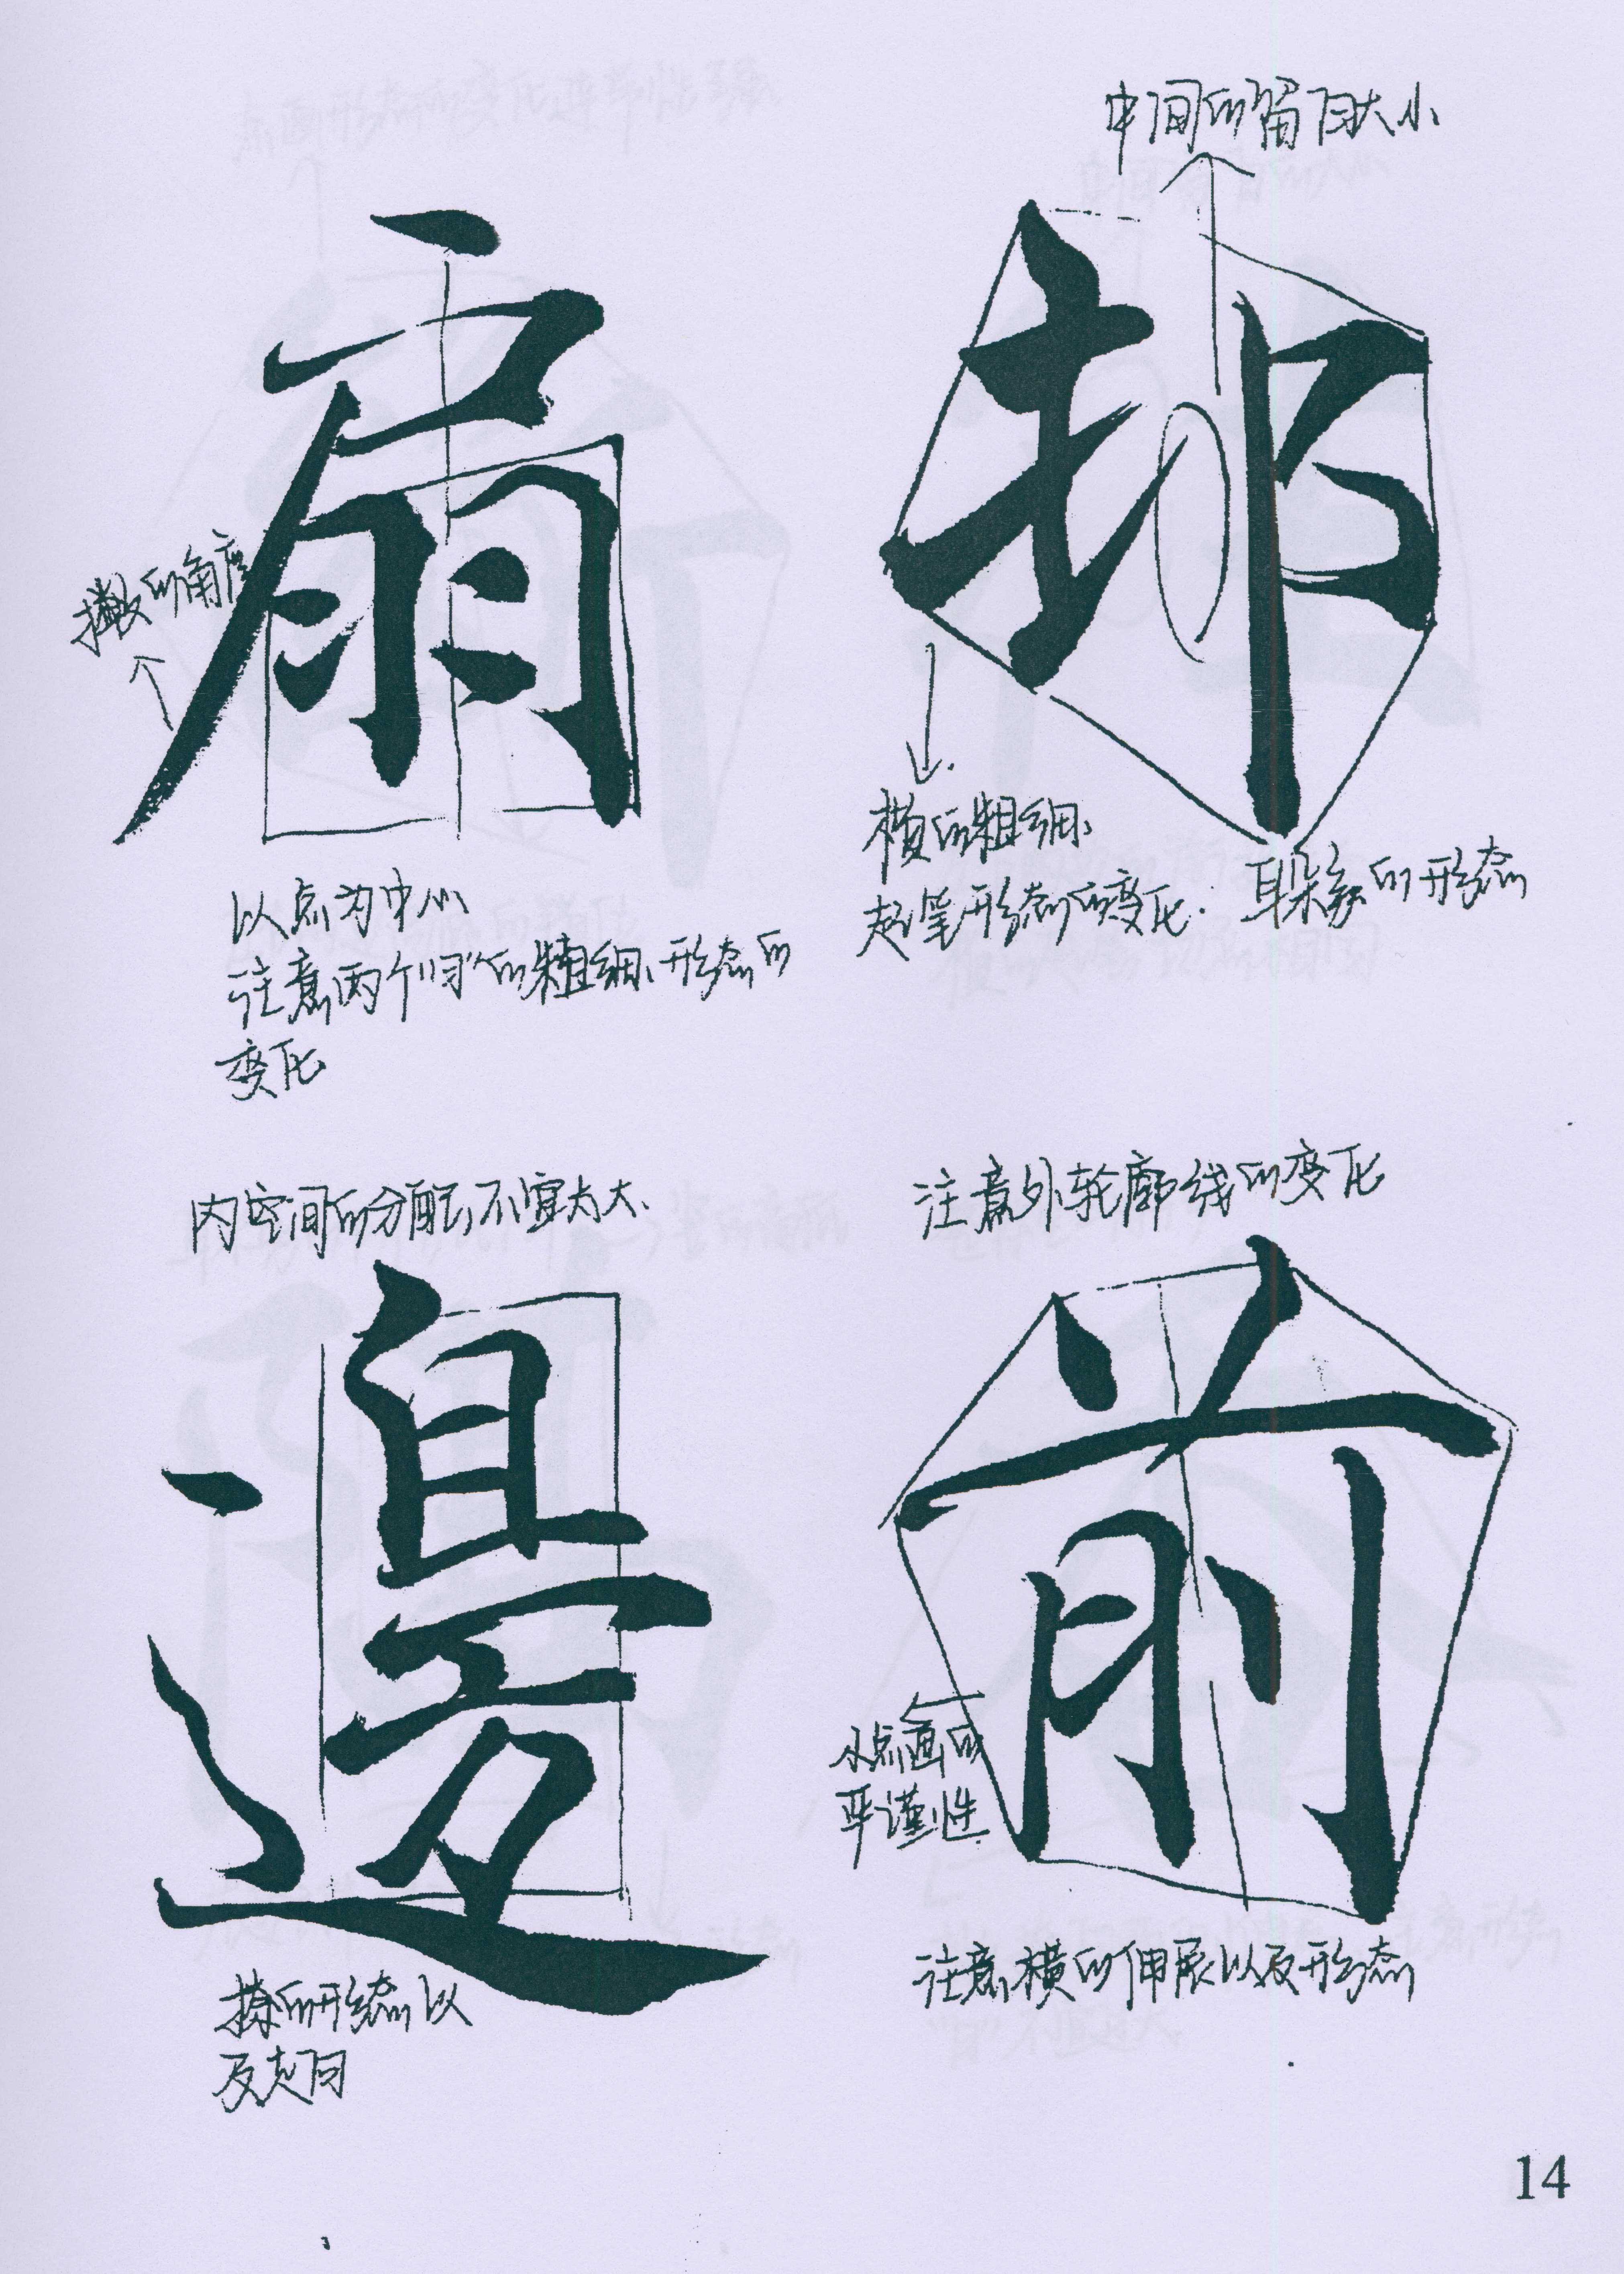 扇
撇的角度
以点为中心
注意两个“习”的粗细、形态的
变化
中间的留白大小
邦
横的粗细、
起笔形态的变化.
耳朵旁的形态
内空间的分配,不宜太大、
邊
捺的形态以
及走向
注意外轮廓线的变化
前
小点画的
严谨性.
注意横的伸展以及形态
14